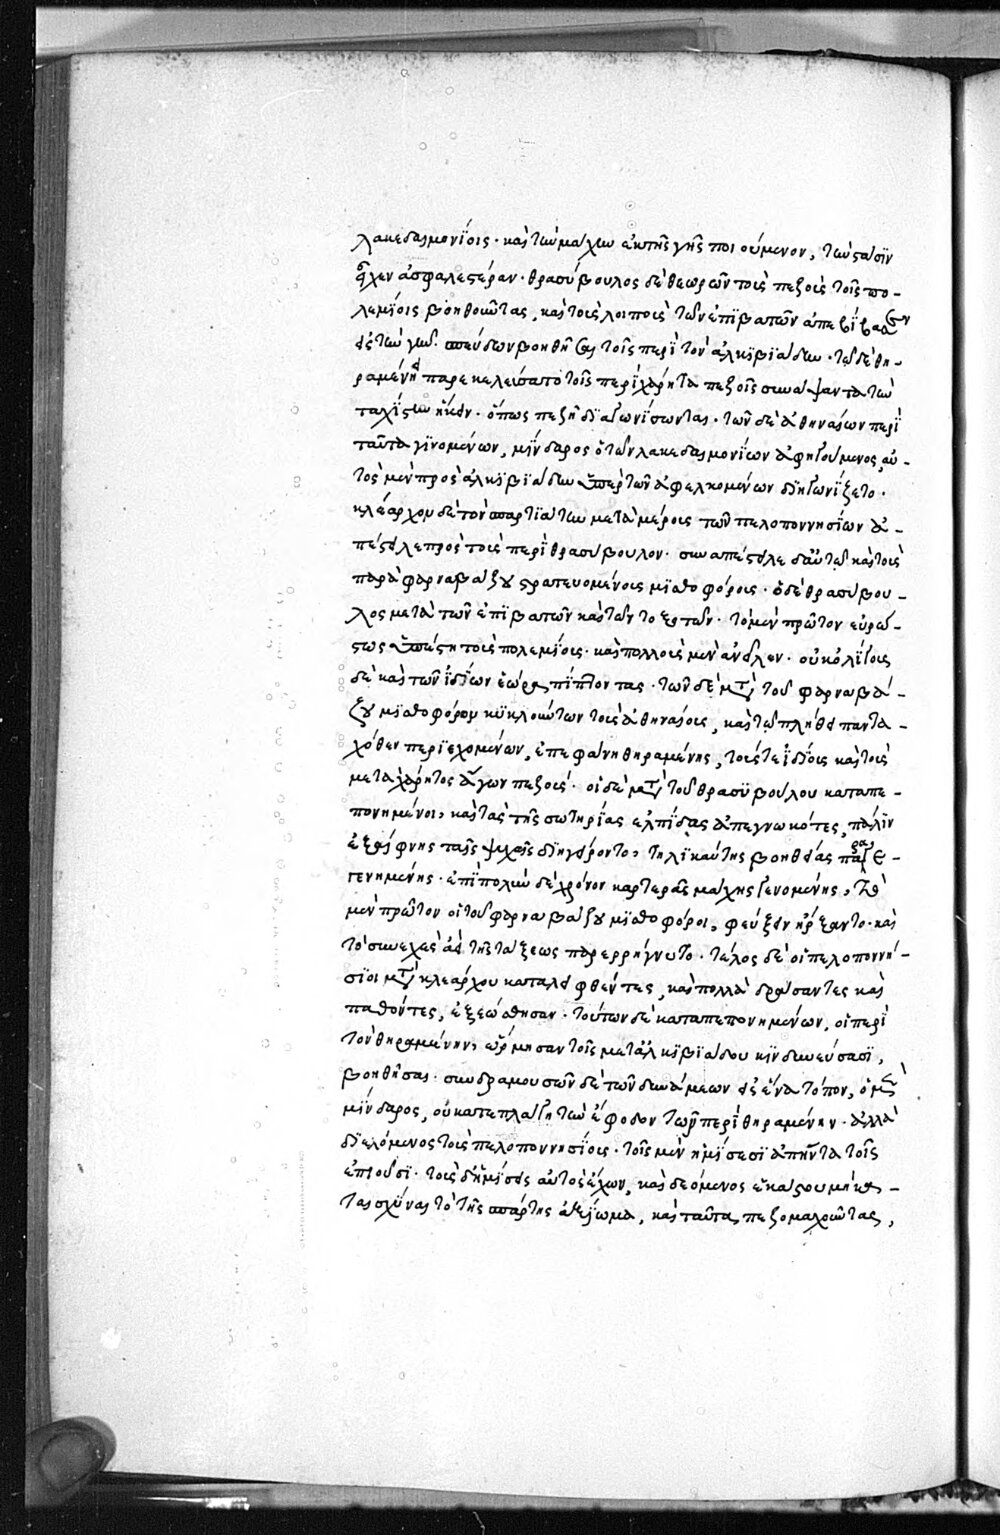 λακεδαιμονίοις· καὶ τὴν μάχην ἐκ τῆς γῆς ποιούμενον, τὴν στάσιν
ἔχειν ἀσφαλεστέραν· θρασύβουλος δὲ θεωρῶν τοὺς πεζοὺς τοῖς πο-
λεμίοις βοηθοῦντας, καὶ τοὺς λοιποὺς τῶν ἐπιβατῶν ἀπεβίβασεν
εἰς τὴν γῆν· σπεύδων βοηθῆσαι τοῖς περὶ τὸν ἀλκιβιάδην· τῷ δὲ θη-
ραμένει παρεκελεύσατο τοῖς περὶ χάρητα πεζοῖς συνάψαντα τὴν
ταχίστην ἥκειν· ὅπως πεζῇ διαγωνίσωνται· τῶν δὲ ἀθηναίων περὶ
ταῦτα γινομένων, μίνδαρος ὁ τῶν λακεδαιμονίων ἀφηγούμενος, αὐ-
τὸς μὲν πρὸς ἀλκιβιάδην ὑπὲρ τῶν ἀφελκομένων διηγωνίζετο·
κλέαρχον δὲ τὸν σπαρτιάτην μετὰ μέρους τῶν πελοποννησίων ἀ-
πέστειλε πρὸς τοὺς περὶ θρασύβουλον· συναπέστειλε δ' αὐτῷ καὶ τοὺς
παρὰ φαρναβάζου στρατευομένους μισθοφόρους· ὁ δὲ θρασύβου-
λος μετὰ τῶν ἐπιβατῶν καὶ τῶν τοξοτῶν· τὸ μὲν πρῶτον εὐρώ-
στως ὑπέστη τοὺς πολεμίους· καὶ πολλοὺς μὲν ἀνεῖλεν· οὐκ ὀλίγους
δὲ καὶ τῶν ἰδίων ἑώρα πίπτοντας· τῶν δὲ μετὰ τοῦ φαρναβά-
ζου μισθοφόρων κυκλούντων τοὺς ἀθηναίους, καὶ τῷ πλήθει παντα-
χόθεν περιεχομένων, ἐπεφάνη θηραμένης, τούς τε ἰδίους καὶ τοὺς
μετὰ χάρητος ἄγων πεζούς· οἱ δὲ μετὰ τοῦ θρασυβούλου καταπε-
πονημένοι, καὶ τὰς τῆς σωτηρίας ἐλπίδας ἀπεγνωκότες, πάλιν
ἐξαίφνης ταῖς ψυχαῖς διηγείροντο, τηλικαύτης βοηθείας παραγε-
γενημένης· ἐπὶ πολὺν δὲ χρόνον καρτερᾶς μάχης γενομένης, τὸ
μὲν πρῶτον οἱ τοῦ φαρναβάζου μισθοφόροι, φεύγειν ἤρξαντο· καὶ
τὸ συνεχὲς ἀεὶ τῆς τάξεως παρερρήγνυτο· τέλος δὲ οἱ πελοποννή-
σιοι μετὰ κλεάρχου καταλειφθέντες, καὶ πολλὰ δράσαντες καὶ
παθόντες, ἐξεώσθησαν· τούτων δὲ καταπεπονημένων, οἱ περὶ
τὸν θηραμένην, ὥρμησαν τοῖς μετ' ἀλκιβιάδου κινδυνεύσασι,
βοηθῆσαι· συνδραμουσῶν δὲ τῶν δυνάμεων εἰς ἕνα τόπον, ὁ μὲν
μίνδαρος, οὐ κατεπλάγη τὴν ἔφοδον τῶν περὶ θηραμένην· ἀλλὰ
διελόμενος τοὺς πελοποννησίους· τοῖς μὲν ἡμίσεσι ἀπήντα τοῖς
ἐπιοῦσι· τοὺς δ' ἡμίσεις αὐτὸς ἔχων, καὶ δεόμενος ἑκάστου μὴ κα-
ταισχῦναι τὸ τῆς σπάρτης ἀξίωμα, καὶ ταῦτα πεζομαχοῦντας,